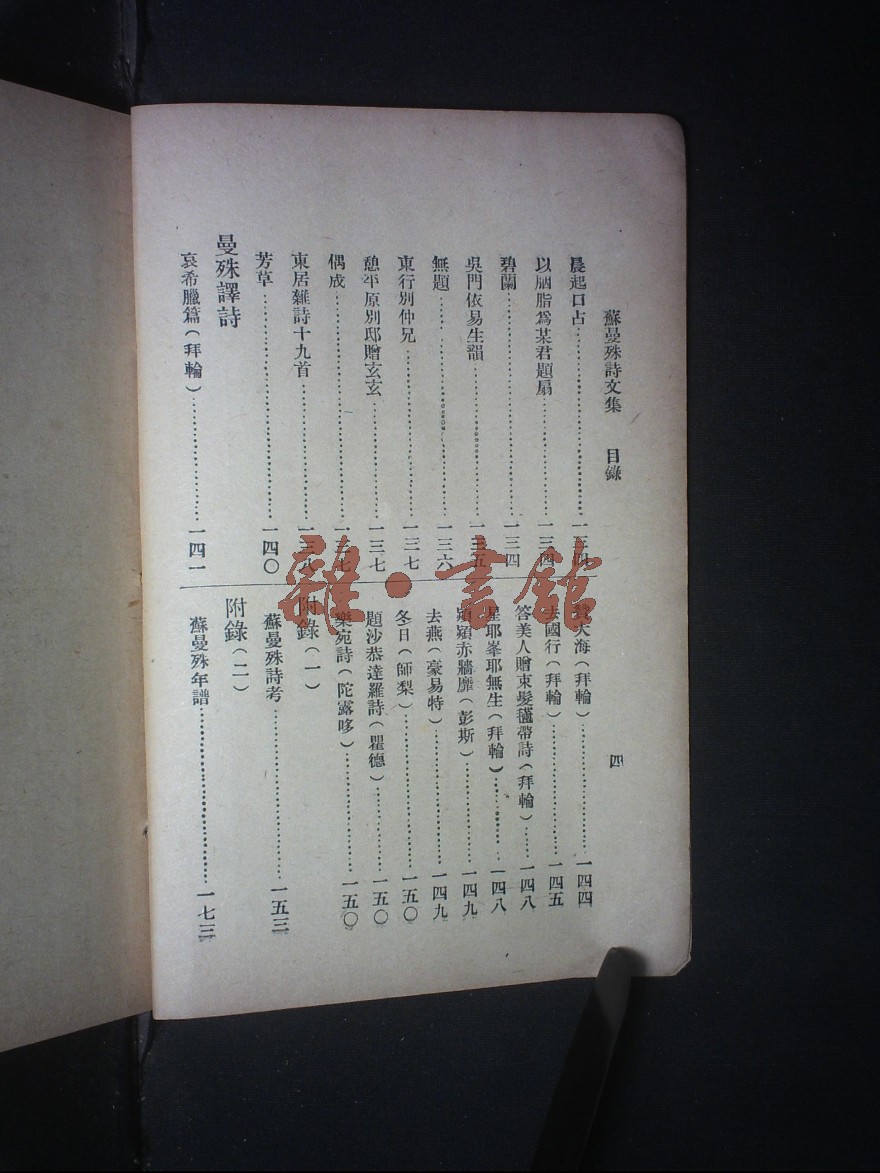 蘇曼殊詩文集 目錄
四
晨起口占……一三四
以胭脂爲某君題扇……一三四
碧蘭……一三四
吳門依易生韻……一三五
無題……一三六
東行別仲兄……一三七
憩平原別邸贈玄玄……一三七
偶成……一三七
東居雜詩十九首……一三八
芳草……一四〇
曼殊譯詩
哀希臘篇（拜輪）……一四一
贊大海（拜輪）……一四四
去國行（拜輪）……一四五
答美人贈束髮𣰽帶詩（拜輪）……一四八
星耶峯耶無生（拜輪）……一四八
熲熲赤牆靡（彭斯）……一四九
去燕（豪易特）……一四九
冬日（師梨）……一五〇
題沙恭達羅詩（瞿德）……一五〇
樂宛詩（陀露哆）……一五〇
附錄（一）
蘇曼殊詩考……一五三
附錄（二）
蘇曼殊年譜……一七三
雜·書館